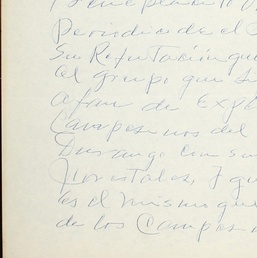 periodico de el
Su Refutación qu
al grupo que s
afan de Exp
Campesinos del
Durango con su
Florestales, y qu
es el mismo que
de los Campes